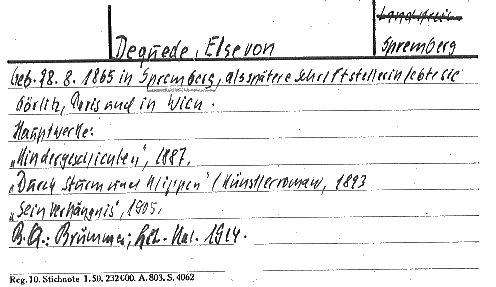 Landkreis
Spremberg
Dequede, Else von
geb. 28. 8. 1865 in Spremberg, als spätere Schriftstellerin lebte sie
Görlitz, Paris und in Wien.
Hauptwerke:
„Kindergeschichten", 1887.
„Durch Sturm und Klippen" (Künstlerroman, 1893
„Sein Verhängnis", 1905.
B.A.: Brümmer; Lit.-Kal. 1914.
Reg. 10. Stichnote 1. 50. 232 000. A. 803. S. 4062